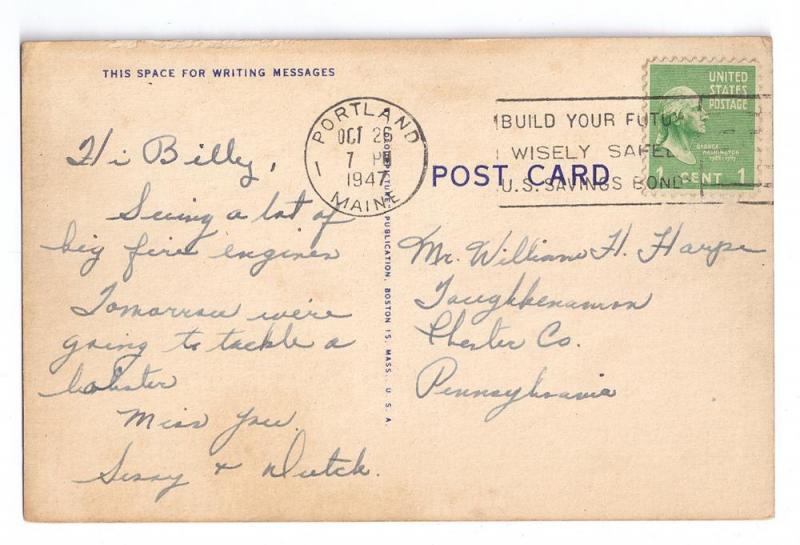 THIS SPACE FOR WRITING MESSAGES
Hi Billy,
Seeing a lot of
big fire engines
Tomorrow we're
going to tackle a
lobster
Miss you.
Sissy & Dutch.
PORTLAND
OCT 26
7 PM
1947
MAINE
1
PUBLICATION, BOSTON 15, MASS. U. S. A.
BUILD YOUR FUTU
WISELY SAFEL
U.S. SAVINGS BOND
UNITED
STATES
POSTAGE
GEORGE
WASHINGTON
1 CENT 1
POST CARD
Mr. William H. Harpe
Toughkenamon
Chester Co.
Pennsylvania